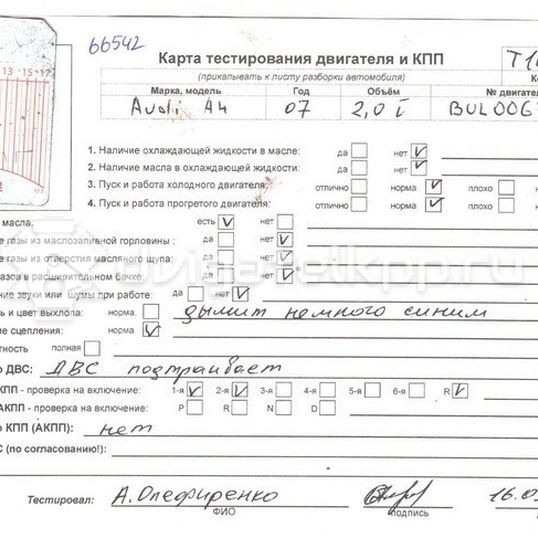 66542
13 15 17
Карта тестирования двигателя и КПП
(прикалывать к листу разборки автомобиля)
Марка, модель Год Объём № двигател
Audi A4 07 2,0 i BUL006
1. Наличие охлаждающей жидкости в масле: да нет
2. Наличие масла в охлаждающей жидкости: да нет
3. Пуск и работа холодного двигателя: отлично норма плохо
4. Пуск и работа прогретого двигателя: отлично норма плохо
масла: есть нет
е газы из маслозаливной горловины : да нет
е газы из отверстия масляного щупа: да нет
азов в расширительном бачке: да нет
ние звуки или шумы при работе: да нет
ь и цвет выхлопа: норма: дымит немного синим
ние сцепления: норма:
тность полная
ДВС: ДВС подтраивает
КПП - проверка на включение: 1-я 2-я 3-я 4-я 5-я 6-я R
АКПП - проверка на включение: P R N D
о КПП (АКПП): нет
С (по согласованию!):
Тестировал: А.Олефиренко 16.0
ФИО подпись